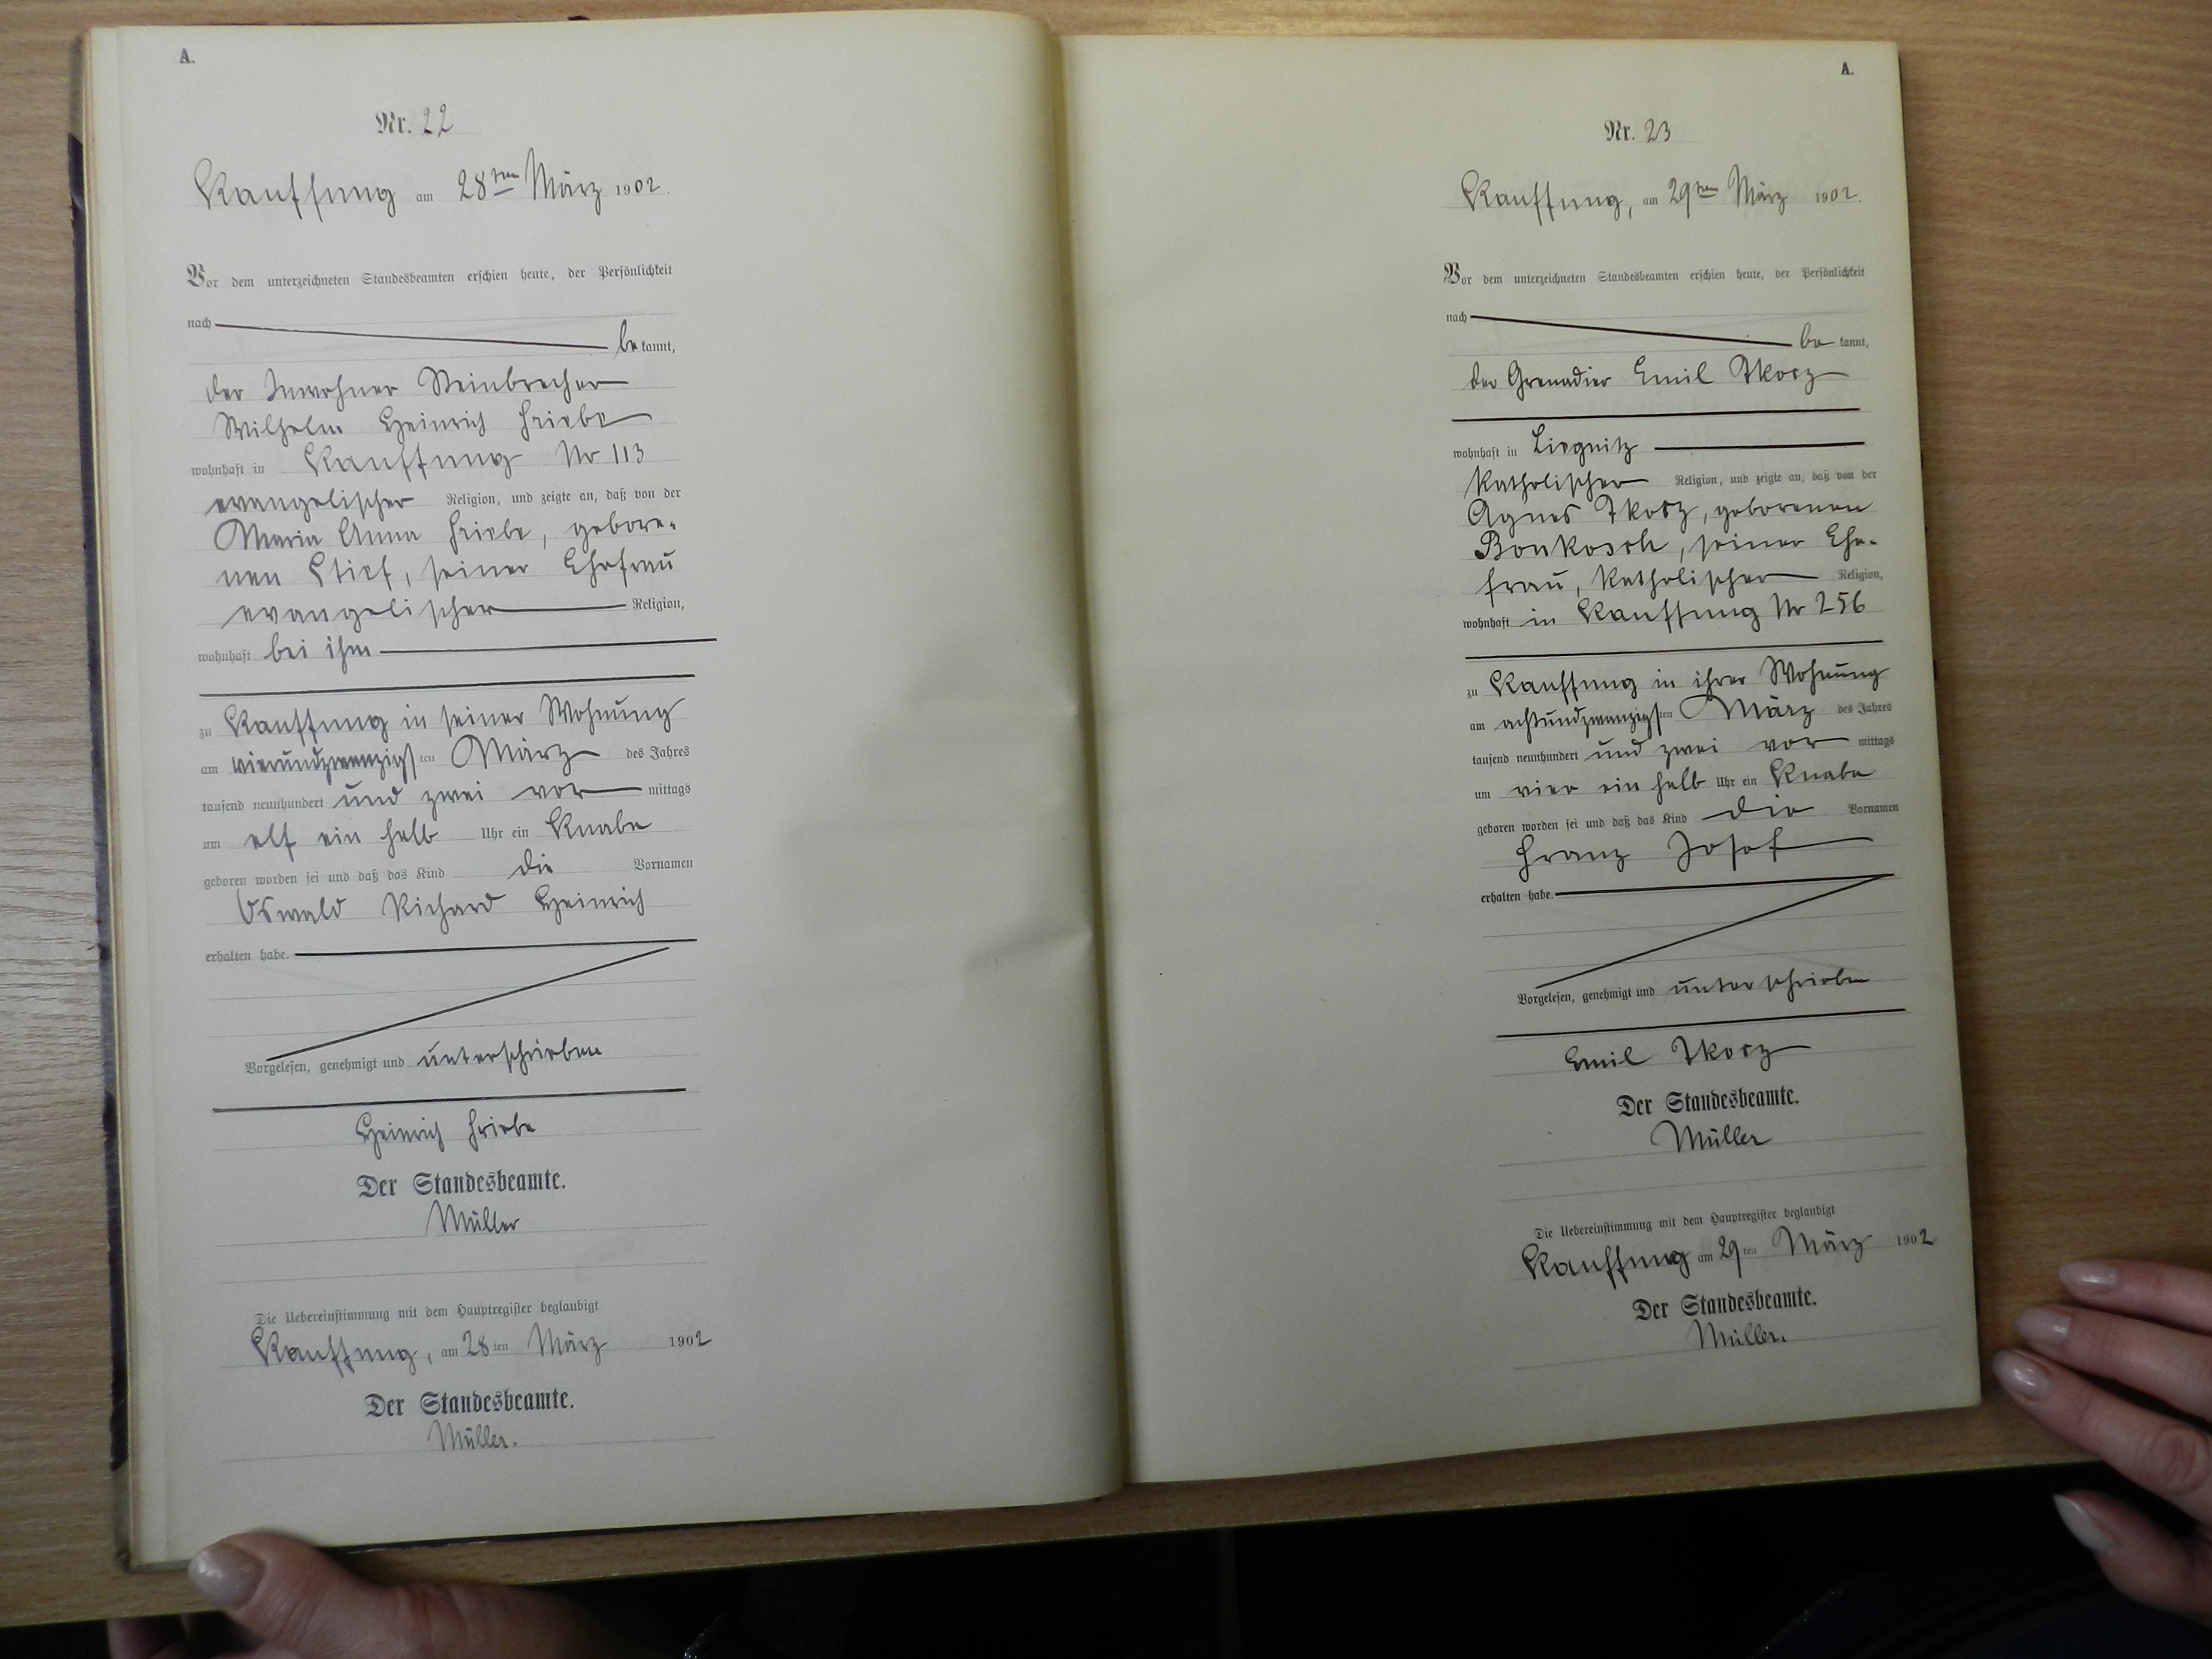 A.
Nr. 22
Kauffung am 28ten März 1902.
Vor dem unterzeichneten Standesbeamten erschien heute, der Persönlichkeit
nach
be kannt,
der Inwohner Steinbrecher
Wilhelm Heinrich Friebe
wohnhaft in Kauffung Nr 113
evangelischer Religion, und zeigte an, daß von der
Maria Anna Friebe, gebore-
nen Stief, seiner Ehefrau
evangelischer Religion,
wohnhaft bei ihm
zu Kauffung in seiner Wohnung
am vierundzwanzigsten März des Jahres
tausend neunhundert und zwei vor mittags
um elf ein halb Uhr ein Knabe
geboren worden sei und daß das Kind die Vornamen
Oswald Richard Heinrich
erhalten habe.
Vorgelesen, genehmigt und unterschrieben
Heinrich Friebe
Der Standesbeamte.
Müller
Die Uebereinstimmung mit dem Hauptregister beglaubigt
Kauffung, am 28ten März 1902
Der Standesbeamte.
Müller.
A.
Nr. 23
Kauffung, am 29ten März 1902.
Vor dem unterzeichneten Standesbeamten erschien heute, der Persönlichkeit
nach
be kannt,
der Grenadier Emil
wohnhaft in Liegnitz
katholischer Religion, und zeigte an, daß von der
Agnes geborenen
Bonkosch, seiner Ehe-
frau, katholischer Religion,
wohnhaft in Kauffung Nr 256
zu Kauffung in ihrer Wohnung
am achtundzwanzigsten März des Jahres
tausend neunhundert und zwei vor mittags
um vier ein halb Uhr ein Knabe
geboren worden sei und daß das Kind die Vornamen
Franz Josef
erhalten habe.
Vorgelesen, genehmigt und unterschrieben
Emil
Der Standesbeamte.
Müller
Die Uebereinstimmung mit dem Hauptregister beglaubigt
Kauffung am 29ten März 1902
Der Standesbeamte.
Müller.